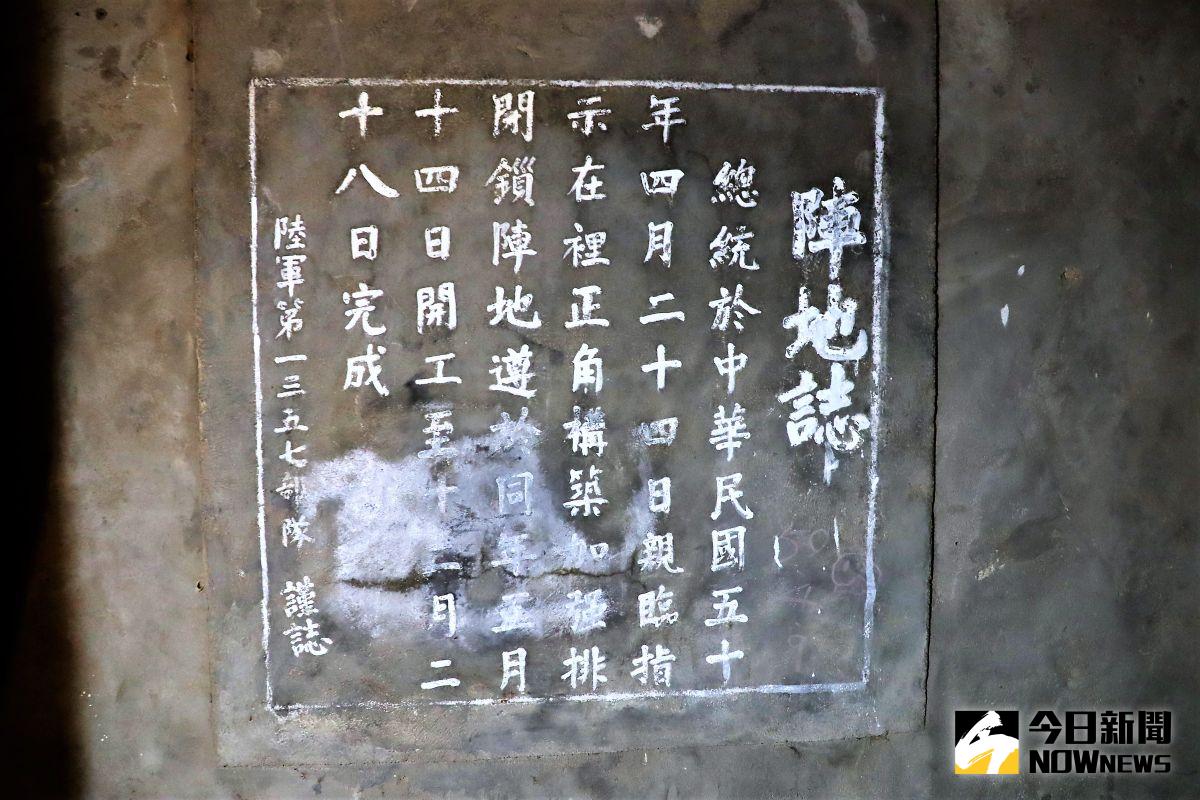 陣地誌
總統於中華民國五十
年四月二十四日親臨指
示在裡正角構築加强排
閉鎖陣地遵同年五月
十四日開工至十二月二
十八日完成
陸軍第一三五七部隊 謹誌
今日新聞
NOWNEWS